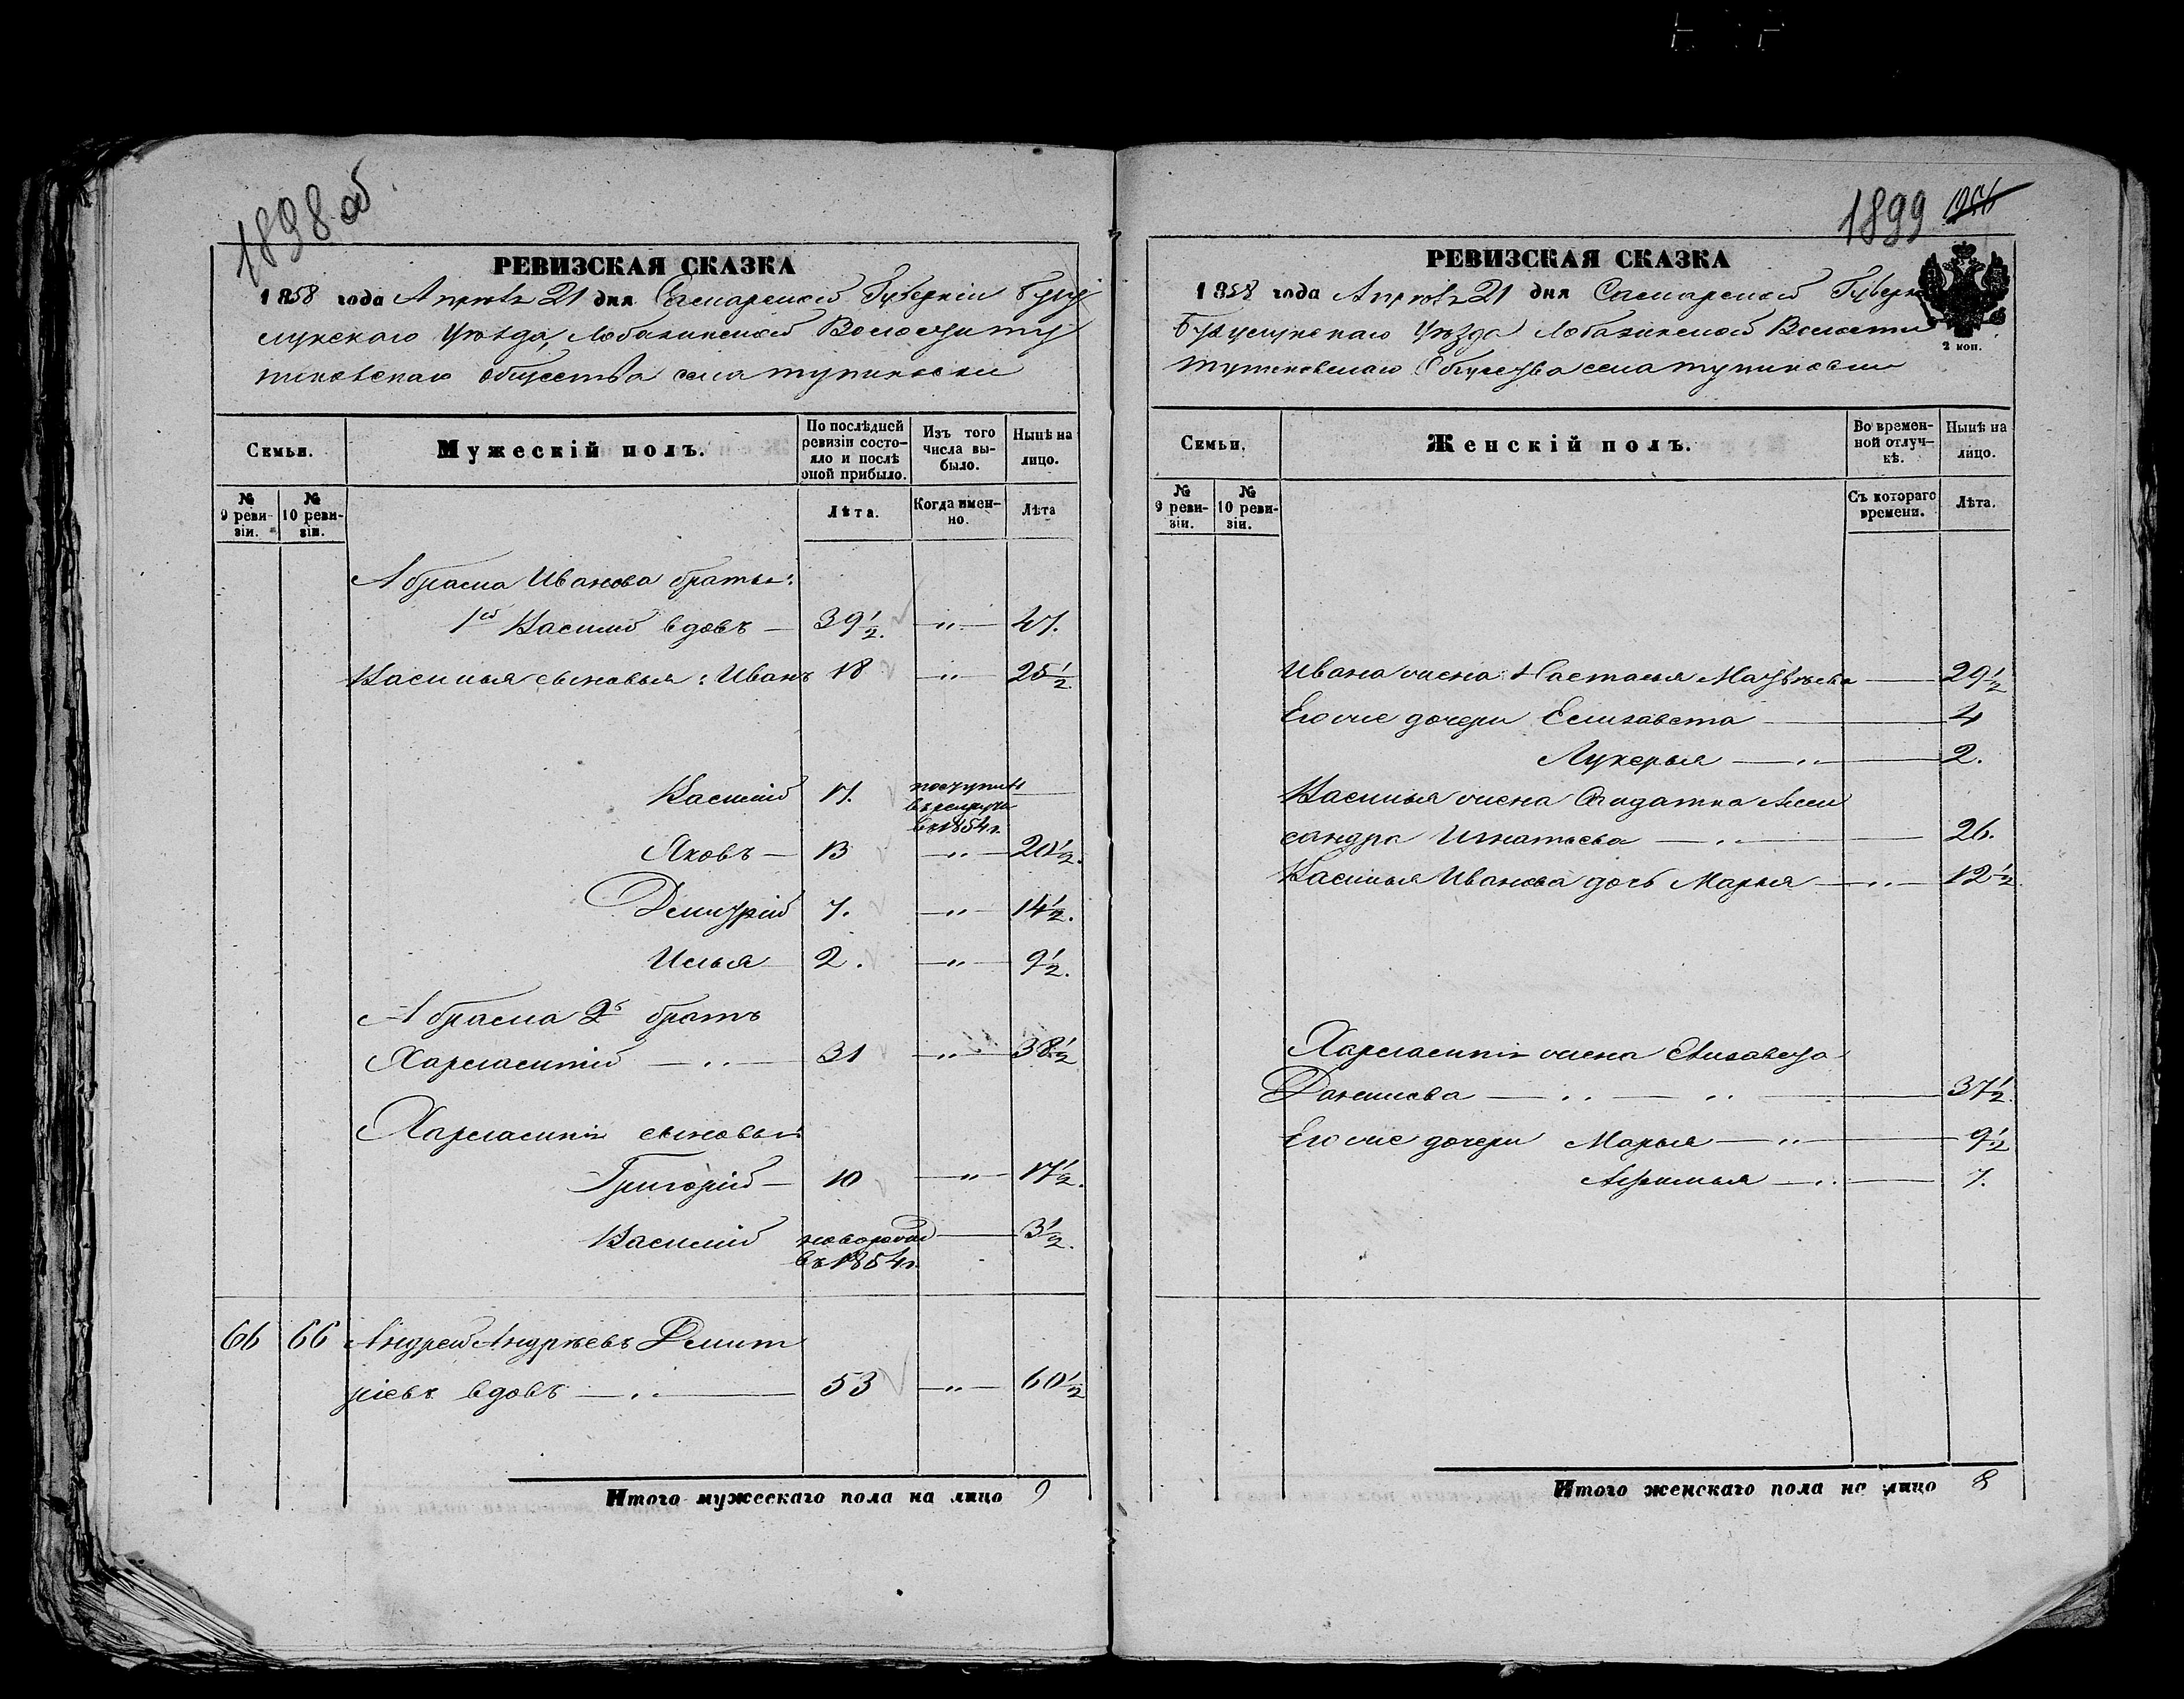 1898 об
РЕВИЗСКАЯ СКАЗКА
1858 года Апрѣля 21 дня Самарской Губерніи Бузу
лукскаго Уѣзда, Лобазинской Волости ту
пиковскаго общества села тупиковки
Семьи.
Мужескій полъ.
По послѣдней ревизіи состо-
яло и послѣ
оной прибыло.
Изъ того
числа вы-
было.
Нынѣ на
лицо.
№
9 реви-
зіи.
№
10 реви-
зіи.
Лѣта.
Когда имен-
но.
Лѣта
Абрама Иванова братья:
1й Василій вдовъ — 39½. —"— 47.
Василья сыновья: Иванъ 18 —"— 25½
Василій 17. поступилъ
в рекруты
въ 1854 г.
Яковъ — 13 —"— 20½.
Дмитрій 7. —"— 14½.
Илья 2. —"— 9½.
Абрама 2й братъ
Харлампій —"— 31 —"— 38½
Харлампія сыновья
Григорій — 10 —"— 17½.
Василій новорожд — 3½.
въ 1854 г.
66 66 Андрей Андрѣевъ Дмит
ріевъ вдовъ —"— 53 —"— 60½
Итого мужескаго пола на лицо 9
1899
РЕВИЗСКАЯ СКАЗКА
1858 года Апрѣля 21 дня Самарской Губерн
Бузулукскаго Уѣзда Лобазинской Волости
тупиковскаго Общества села тупиковки
2 коп.
Семьи.
Женскій полъ.
Во времен-
ной отлуч-
кѣ.
Нынѣ на
лицо.
№
9 реви-
зіи.
№
10 реви-
зіи.
Съ котораго
времени.
Лѣта.
Ивана жена Настасья Матвѣева — 29½
Его же дочери Елизавета — 4
Лукерья —"— 2.
Василья жена Солдатка Алек
сандра Игнатьева —"— 26.
Василья Иванова дочь Марья —"— 12½
Харлампія жена Елизавета
Данилова —"—"— 37½.
Его же дочери Марья —"— 9½
—"— 7.
Итого женскаго пола на лицо 8